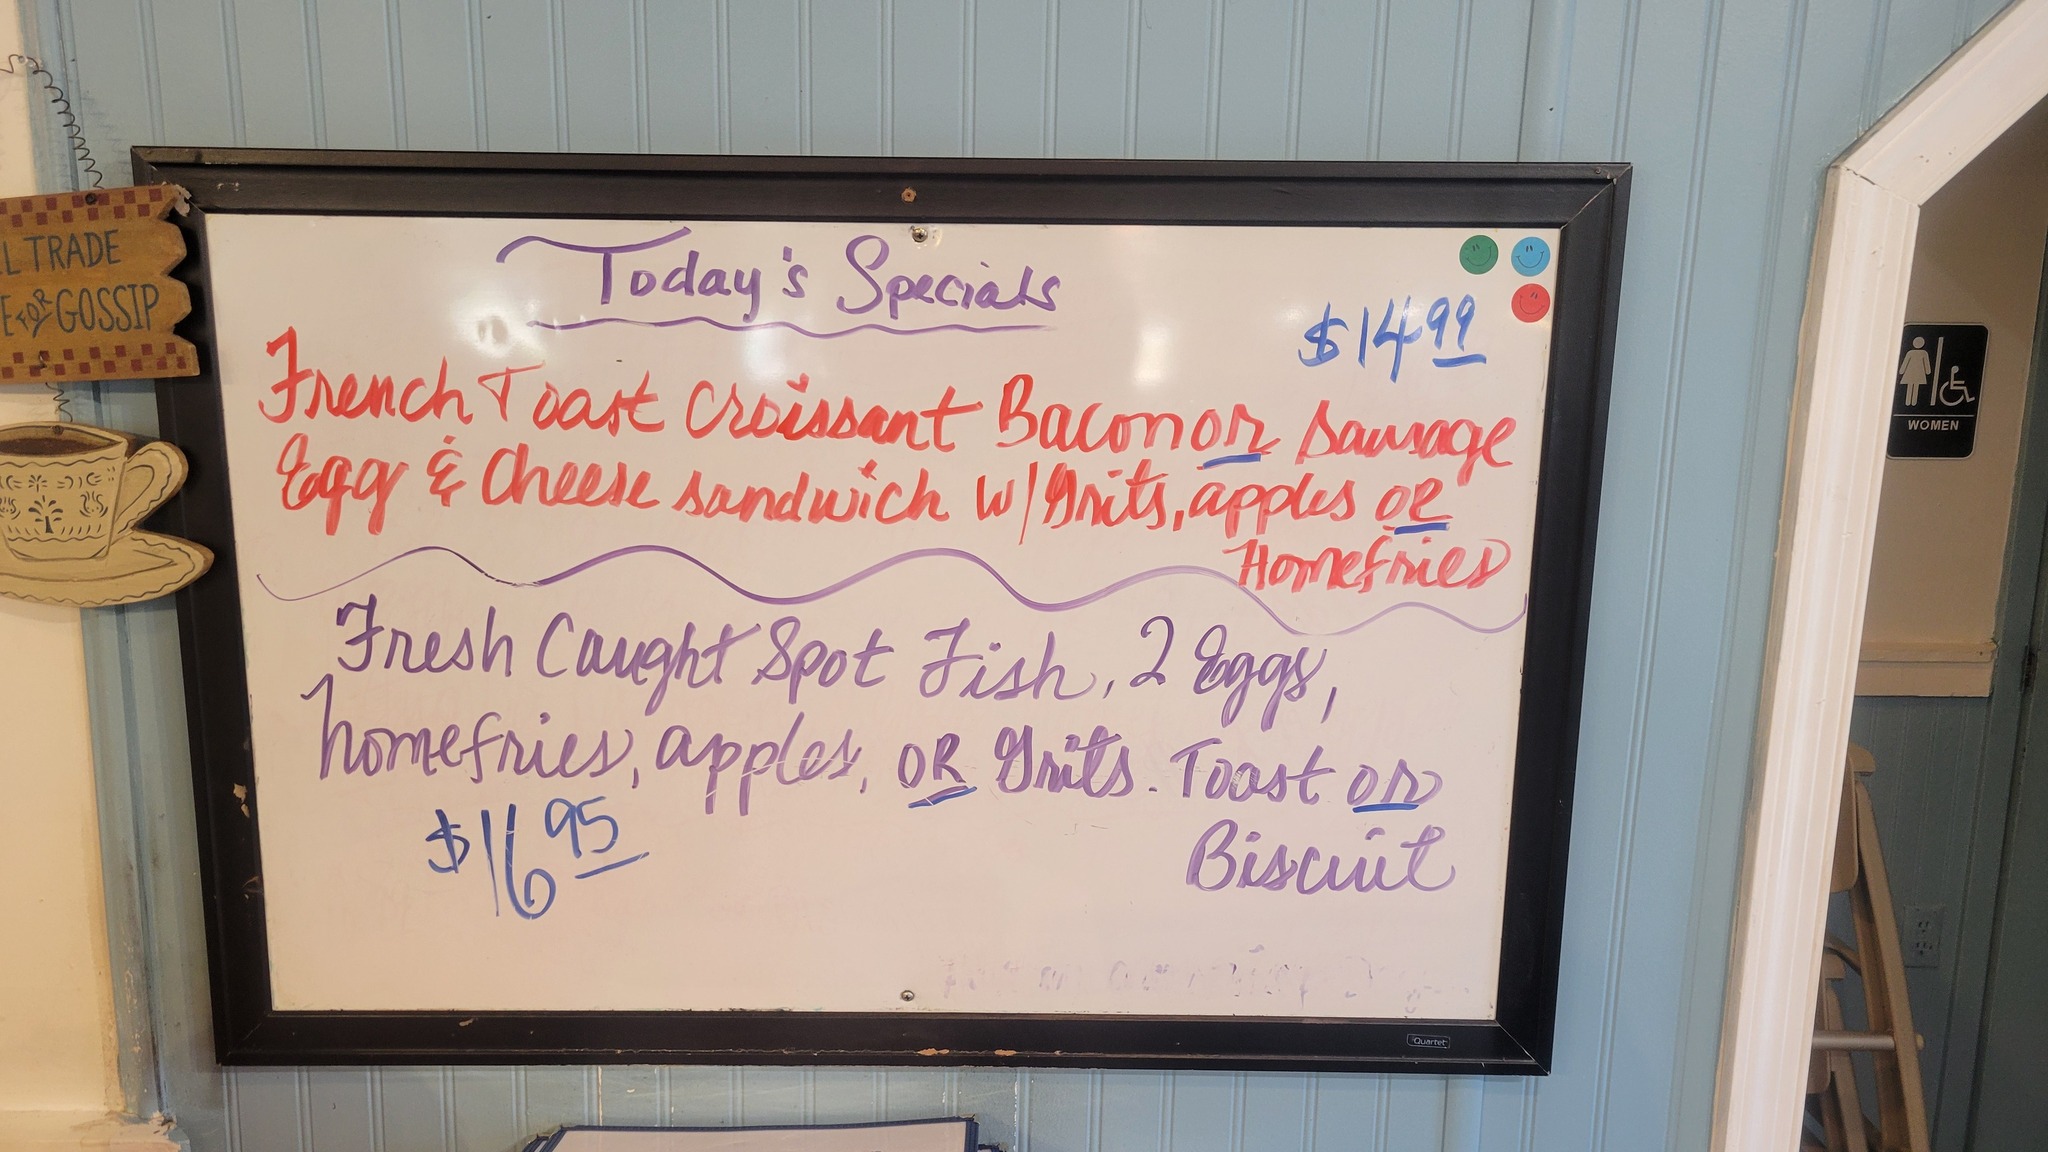 L TRADE
E FOR GOSSIP
Today's Specials
$14.99
French Toast Croissant Bacon or Sausage
Egg & Cheese sandwich w/ Grits, apples OR
Homefries
Fresh Caught Spot Fish, 2 Eggs,
homefries, apples, OR Grits. Toast or
Biscuit
$16 95
Quartet
WOMEN